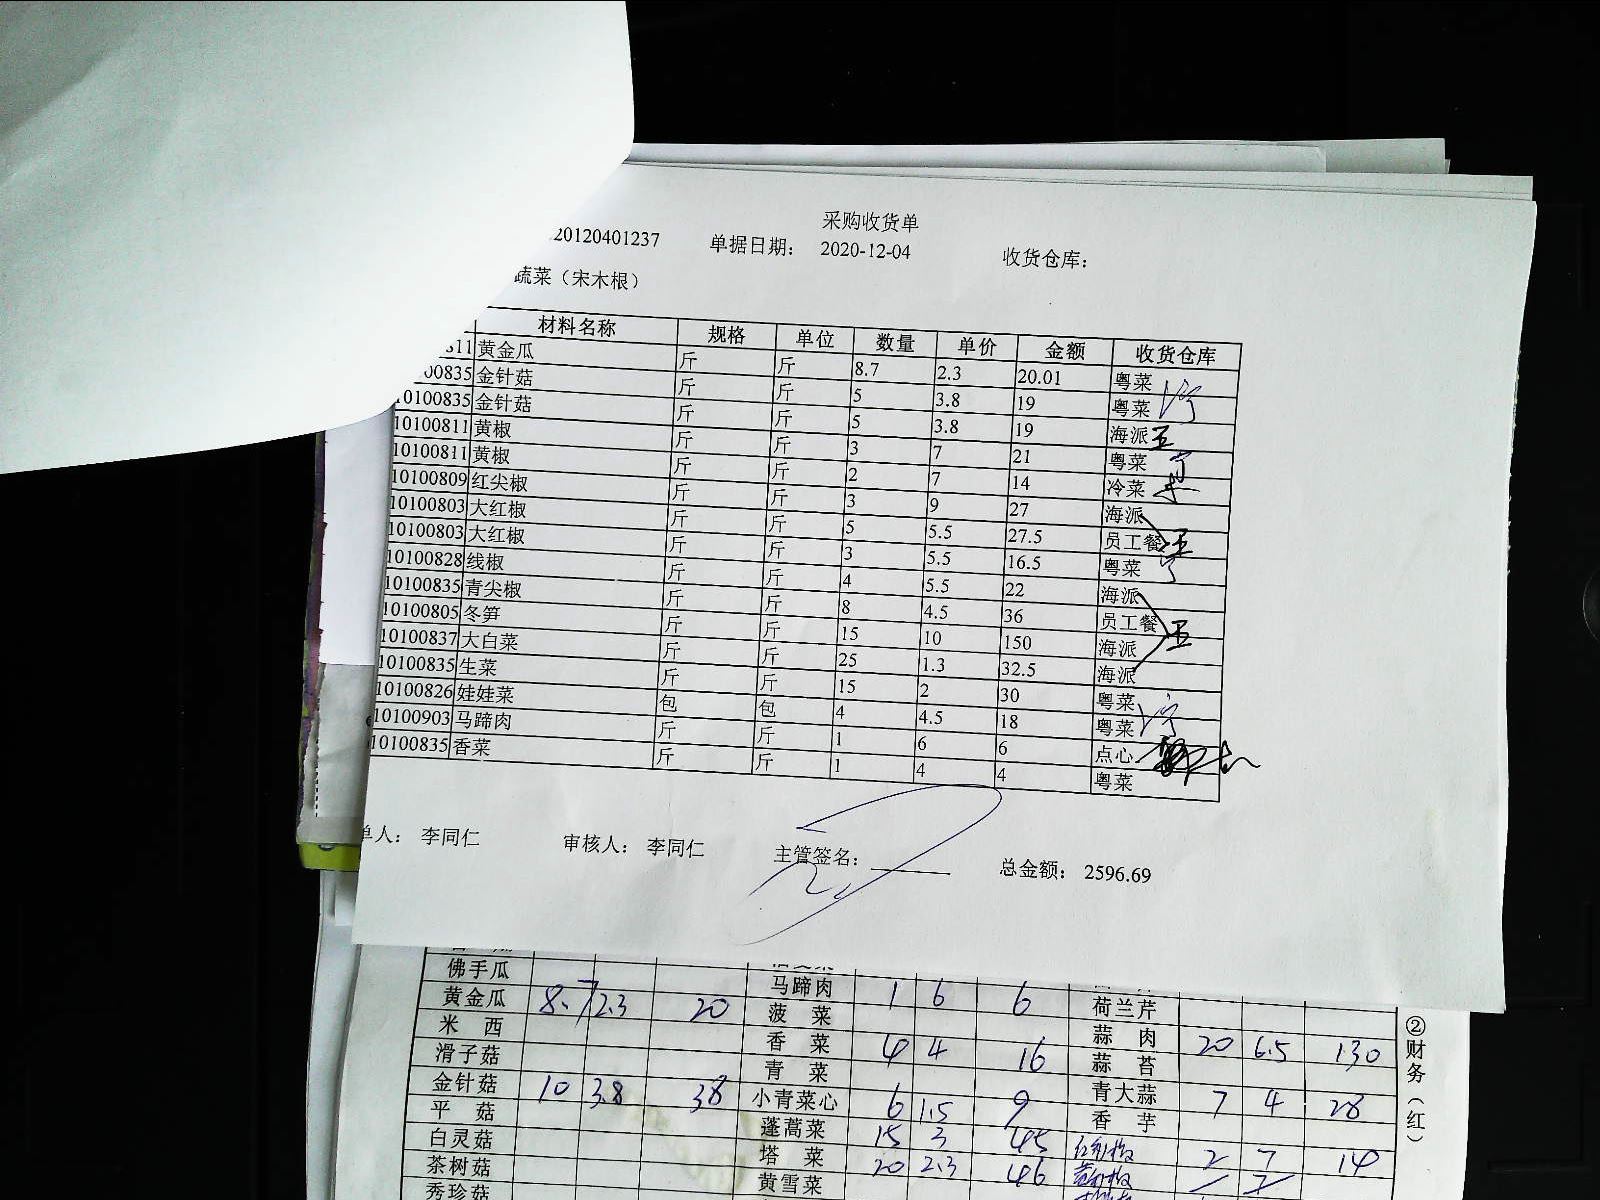 采购收货单
20120401237 单据日期： 2020-12-04 收货仓库：
蔬菜（宋木根）
材料名称 规格 单位 数量 单价 金额 收货仓库
811 黄金瓜 斤 斤 8.7 2.3 20.01 粤菜
100835 金针菇 斤 斤 5 3.8 19 粤菜
10100835 金针菇 斤 斤 5 3.8 19 海派 王
10100811 黄椒 斤 斤 3 7 21 粤菜
10100811 黄椒 斤 斤 2 7 14 冷菜
10100809 红尖椒 斤 斤 3 9 27 海派
10100803 大红椒 斤 斤 5 5.5 27.5 员工餐 王
10100803 大红椒 斤 斤 3 5.5 16.5 粤菜
10100828 线椒 斤 斤 4 5.5 22 海派
10100835 青尖椒 斤 斤 8 4.5 36 员工餐 王
10100805 冬笋 斤 斤 15 10 150 海派
10100837 大白菜 斤 斤 25 1.3 32.5 海派
10100835 生菜 斤 斤 15 2 30 粤菜
10100826 娃娃菜 包 包 4 4.5 18 粤菜
10100903 马蹄肉 斤 斤 1 6 6 点心
10100835 香菜 斤 斤 1 4 4 粤菜
单人： 李同仁 审核人： 李同仁 主管签名： 总金额： 2596.69
佛手瓜 马蹄肉 1 6 6 荷兰芹
黄金瓜 8.7 2.3 20 菠菜 蒜肉 20 6.5 130
米西 香菜 4 4 16 蒜苔
滑子菇 青菜 青大蒜 7 4 28
金针菇 10 3.8 38 小青菜心 6 1.5 9 香芋
平菇 蓬蒿菜 15 3 45 2 7 14
白灵菇 塔菜 20 2.3 46
茶树菇 黄雪菜
秀珍菇
②财务（红）